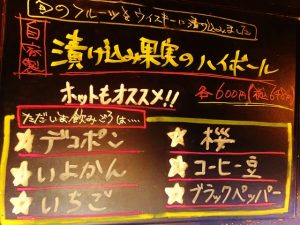 旬のフルーツをウイスキーに漬け込みました
自家製
漬け込み果実のハイボール
ホットもオススメ!!
各600円(税込648円)
ただいま飲みごろは….
★デコポン
★いよかん
★いちご
★桜
★コーヒー豆
★ブラックペッパー